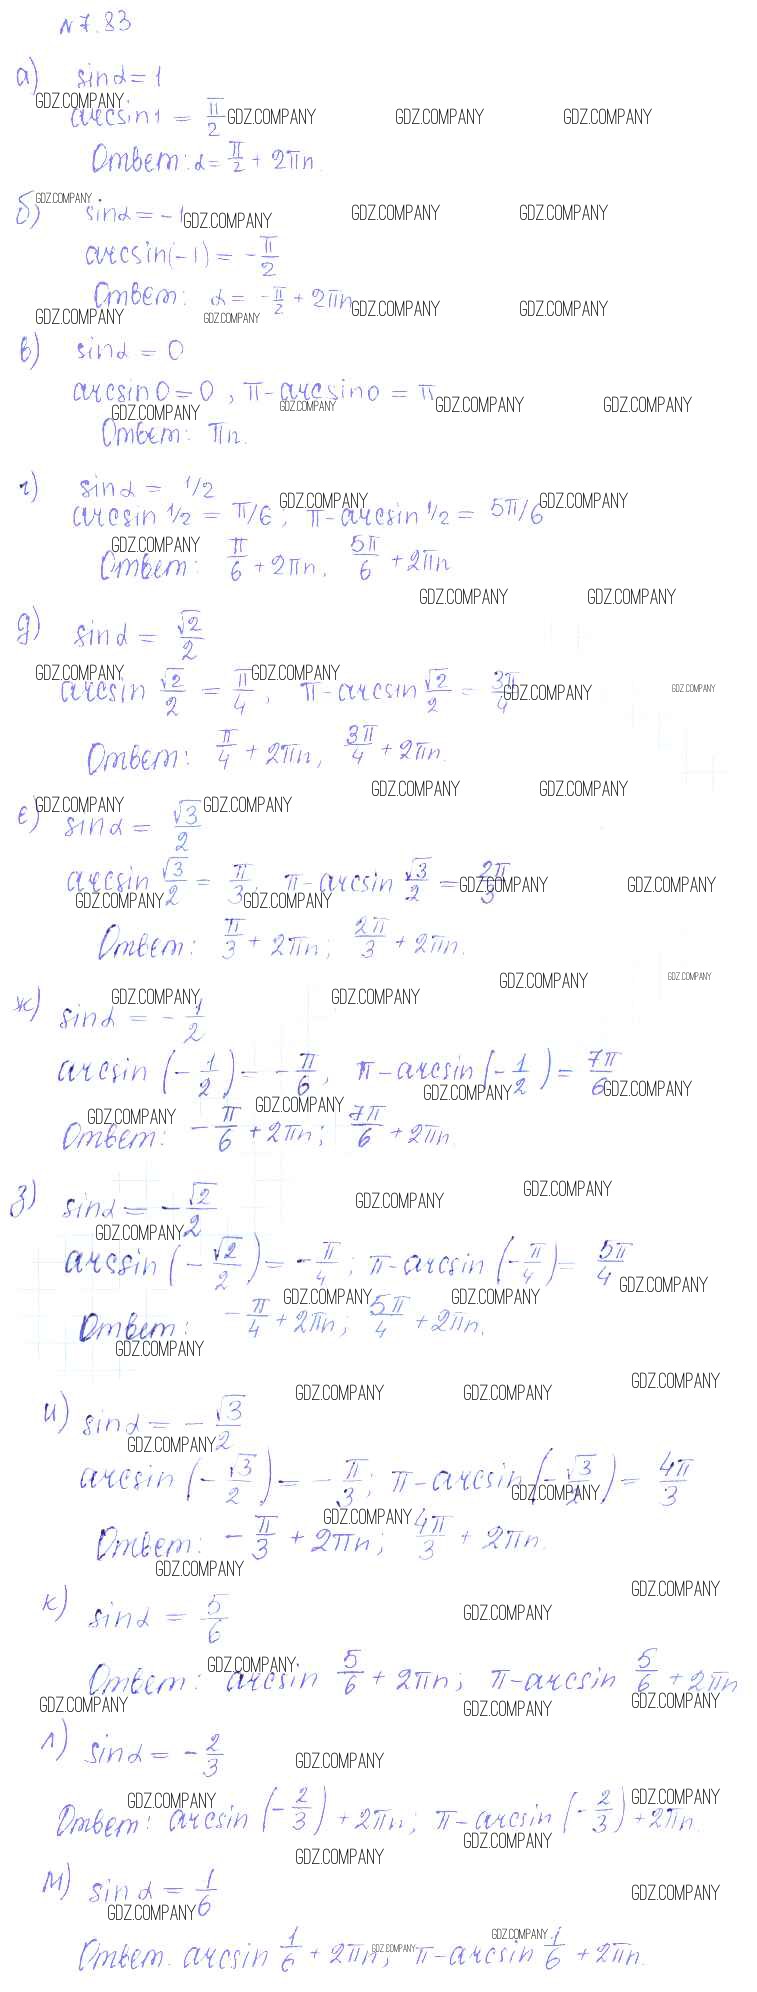 №7.83
а) sinα = 1
arcsin1 = π/2
Ответ: α = π/2 + 2πn.
б) sinα = -1
arcsin(-1) = -π/2
Ответ: α = -π/2 + 2πn
в) sinα = 0
arcsin0 = 0, π - arcsin0 = π
Ответ: πn.
г) sinα = 1/2
arcsin 1/2 = π/6, π - arcsin 1/2 = 5π/6
Ответ: π/6 + 2πn, 5π/6 + 2πn
д) sinα = √2/2
arcsin √2/2 = π/4, π - arcsin √2/2 = 3π/4
Ответ: π/4 + 2πn, 3π/4 + 2πn.
е) sinα = √3/2
arcsin √3/2 = π/3, π - arcsin √3/2 = 2π/3
Ответ: π/3 + 2πn; 2π/3 + 2πn.
ж) sinα = -1/2
arcsin(-1/2) = -π/6, π - arcsin(-1/2) = 7π/6
Ответ: -π/6 + 2πn; 7π/6 + 2πn.
з) sinα = -√2/2
arcsin(-√2/2) = -π/4; π - arcsin(-π/4) = 5π/4
Ответ: -π/4 + 2πn; 5π/4 + 2πn.
и) sinα = -√3/2
arcsin(-√3/2) = -π/3; π - arcsin(-√3/2) = 4π/3
Ответ: -π/3 + 2πn; 4π/3 + 2πn.
к) sinα = 5/6
Ответ: arcsin 5/6 + 2πn; π - arcsin 5/6 + 2πn
л) sinα = -2/3
Ответ: arcsin(-2/3) + 2πn; π - arcsin(-2/3) + 2πn.
м) sinα = 1/6
Ответ. arcsin 1/6 + 2πn, π - arcsin 1/6 + 2πn.
GDZ.COMPANY